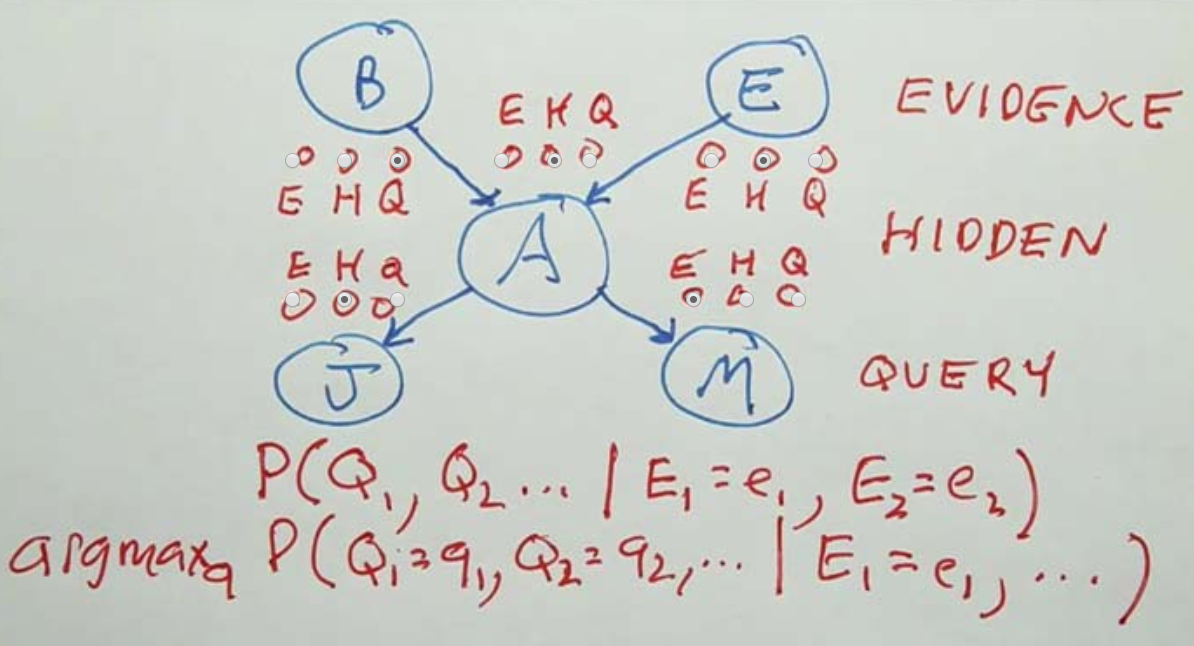 B
E
EVIDENCE
E H Q
E H Q
E H Q
A
HIDDEN
E H Q
E H Q
J
M
QUERY
P(Q₁, Q₂ ... | E₁ = e₁, E₂ = e₂)
argmax_q P(Q₁ = q₁, Q₂ = q₂, ... | E₁ = e₁, ...)